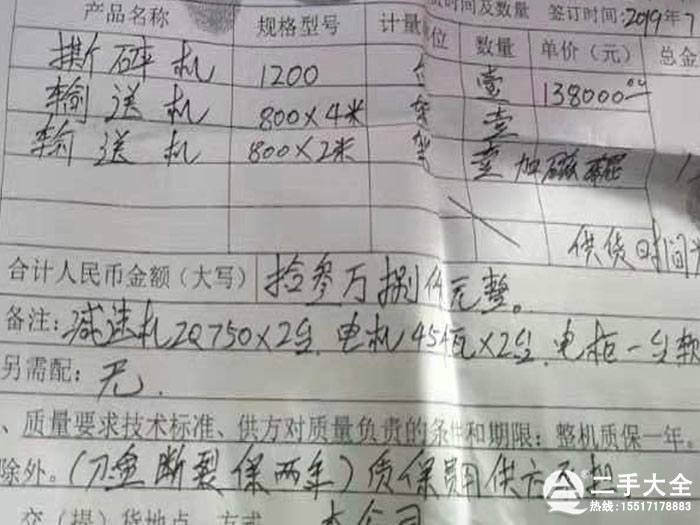 货时间及数量 签订时间:2019年
产品名称 规格型号 计量单位 数量 单价（元） 总金
撕碎机 1200 台 壹 138000.00
输送机 800×4米 壹
输送机 800×2米 壹 加磁辊
供货时间
合计人民币金额（大写） 拾叁万捌仟元整。
备注：减速机ZQ750×2台.电机45瓩×2台.电柜一台
另需配：无.
、质量要求技术标准、供方对质量负责的条件和期限：整机质保一年。
除外。（刀盒断裂保两年）质保费用供方
交（提）货地点、方式 本公司
二手大全
热线:15517178883